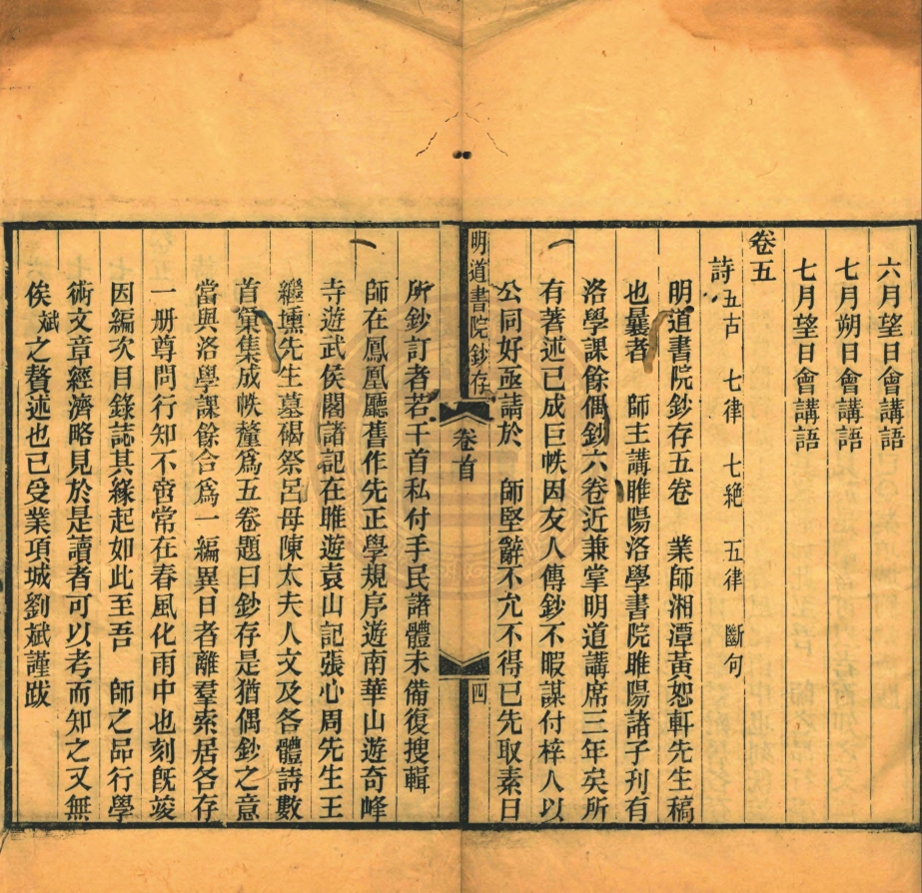 六月望日會講語
七月朔日會講語
七月望日會講語
卷五
詩五古 七律 七絕 五律 斷句
明道書院鈔存五卷 業師湘潭黃恕軒先生稿
也曩者 師主講睢陽洛學書院睢陽諸子刊有
洛學課餘偶鈔六卷近兼掌明道講席三年矣所
有著述已成巨帙因友人傳鈔不暇謀付梓人以
公同好亟請於 師堅辭不允不得已先取素日
明道書院鈔存
卷首
四
所鈔訂者若干首私付手民諸體未備復搜輯
師在鳳凰廳舊作先正學規序遊南華山遊奇峰
寺遊武侯閣諸記在睢遊袁山記張心周先生王
繼壎先生墓碣祭呂母陳太夫人文及各體詩數
首彙集成帙釐為五卷題曰鈔存是猶偶鈔之意
當與洛學課餘合為一編異日者離羣索居各存
一册尊問行知不啻常在春風化雨中也刻旣竣
因編次目錄誌其緣起如此至吾 師之品行學
術文章經濟略見於是讀者可以考而知之又無
俟斌之贅述也已受業項城劉斌謹跋